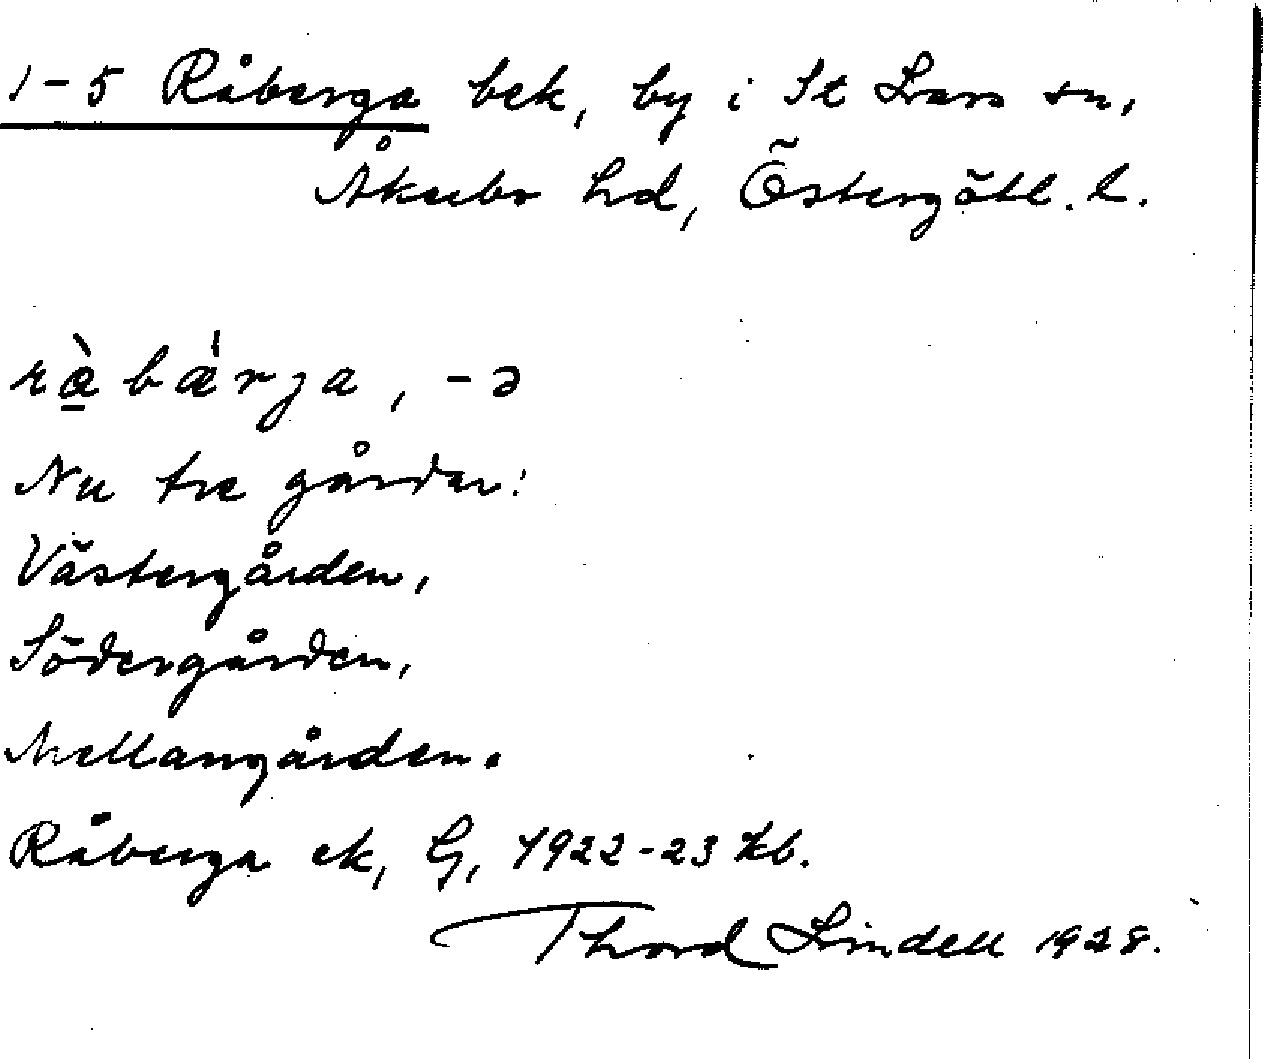 1-5 Råberga bek, by i St Lars sn,
Åkerbo hd, Östergötl. l.
rà̱bǽrja, -ə
Nu tre gårdar:
Västergården,
Södergården,
Mellangården.
Råberga ek, G, 1922-23 kb.
Thord Lindell 1928.